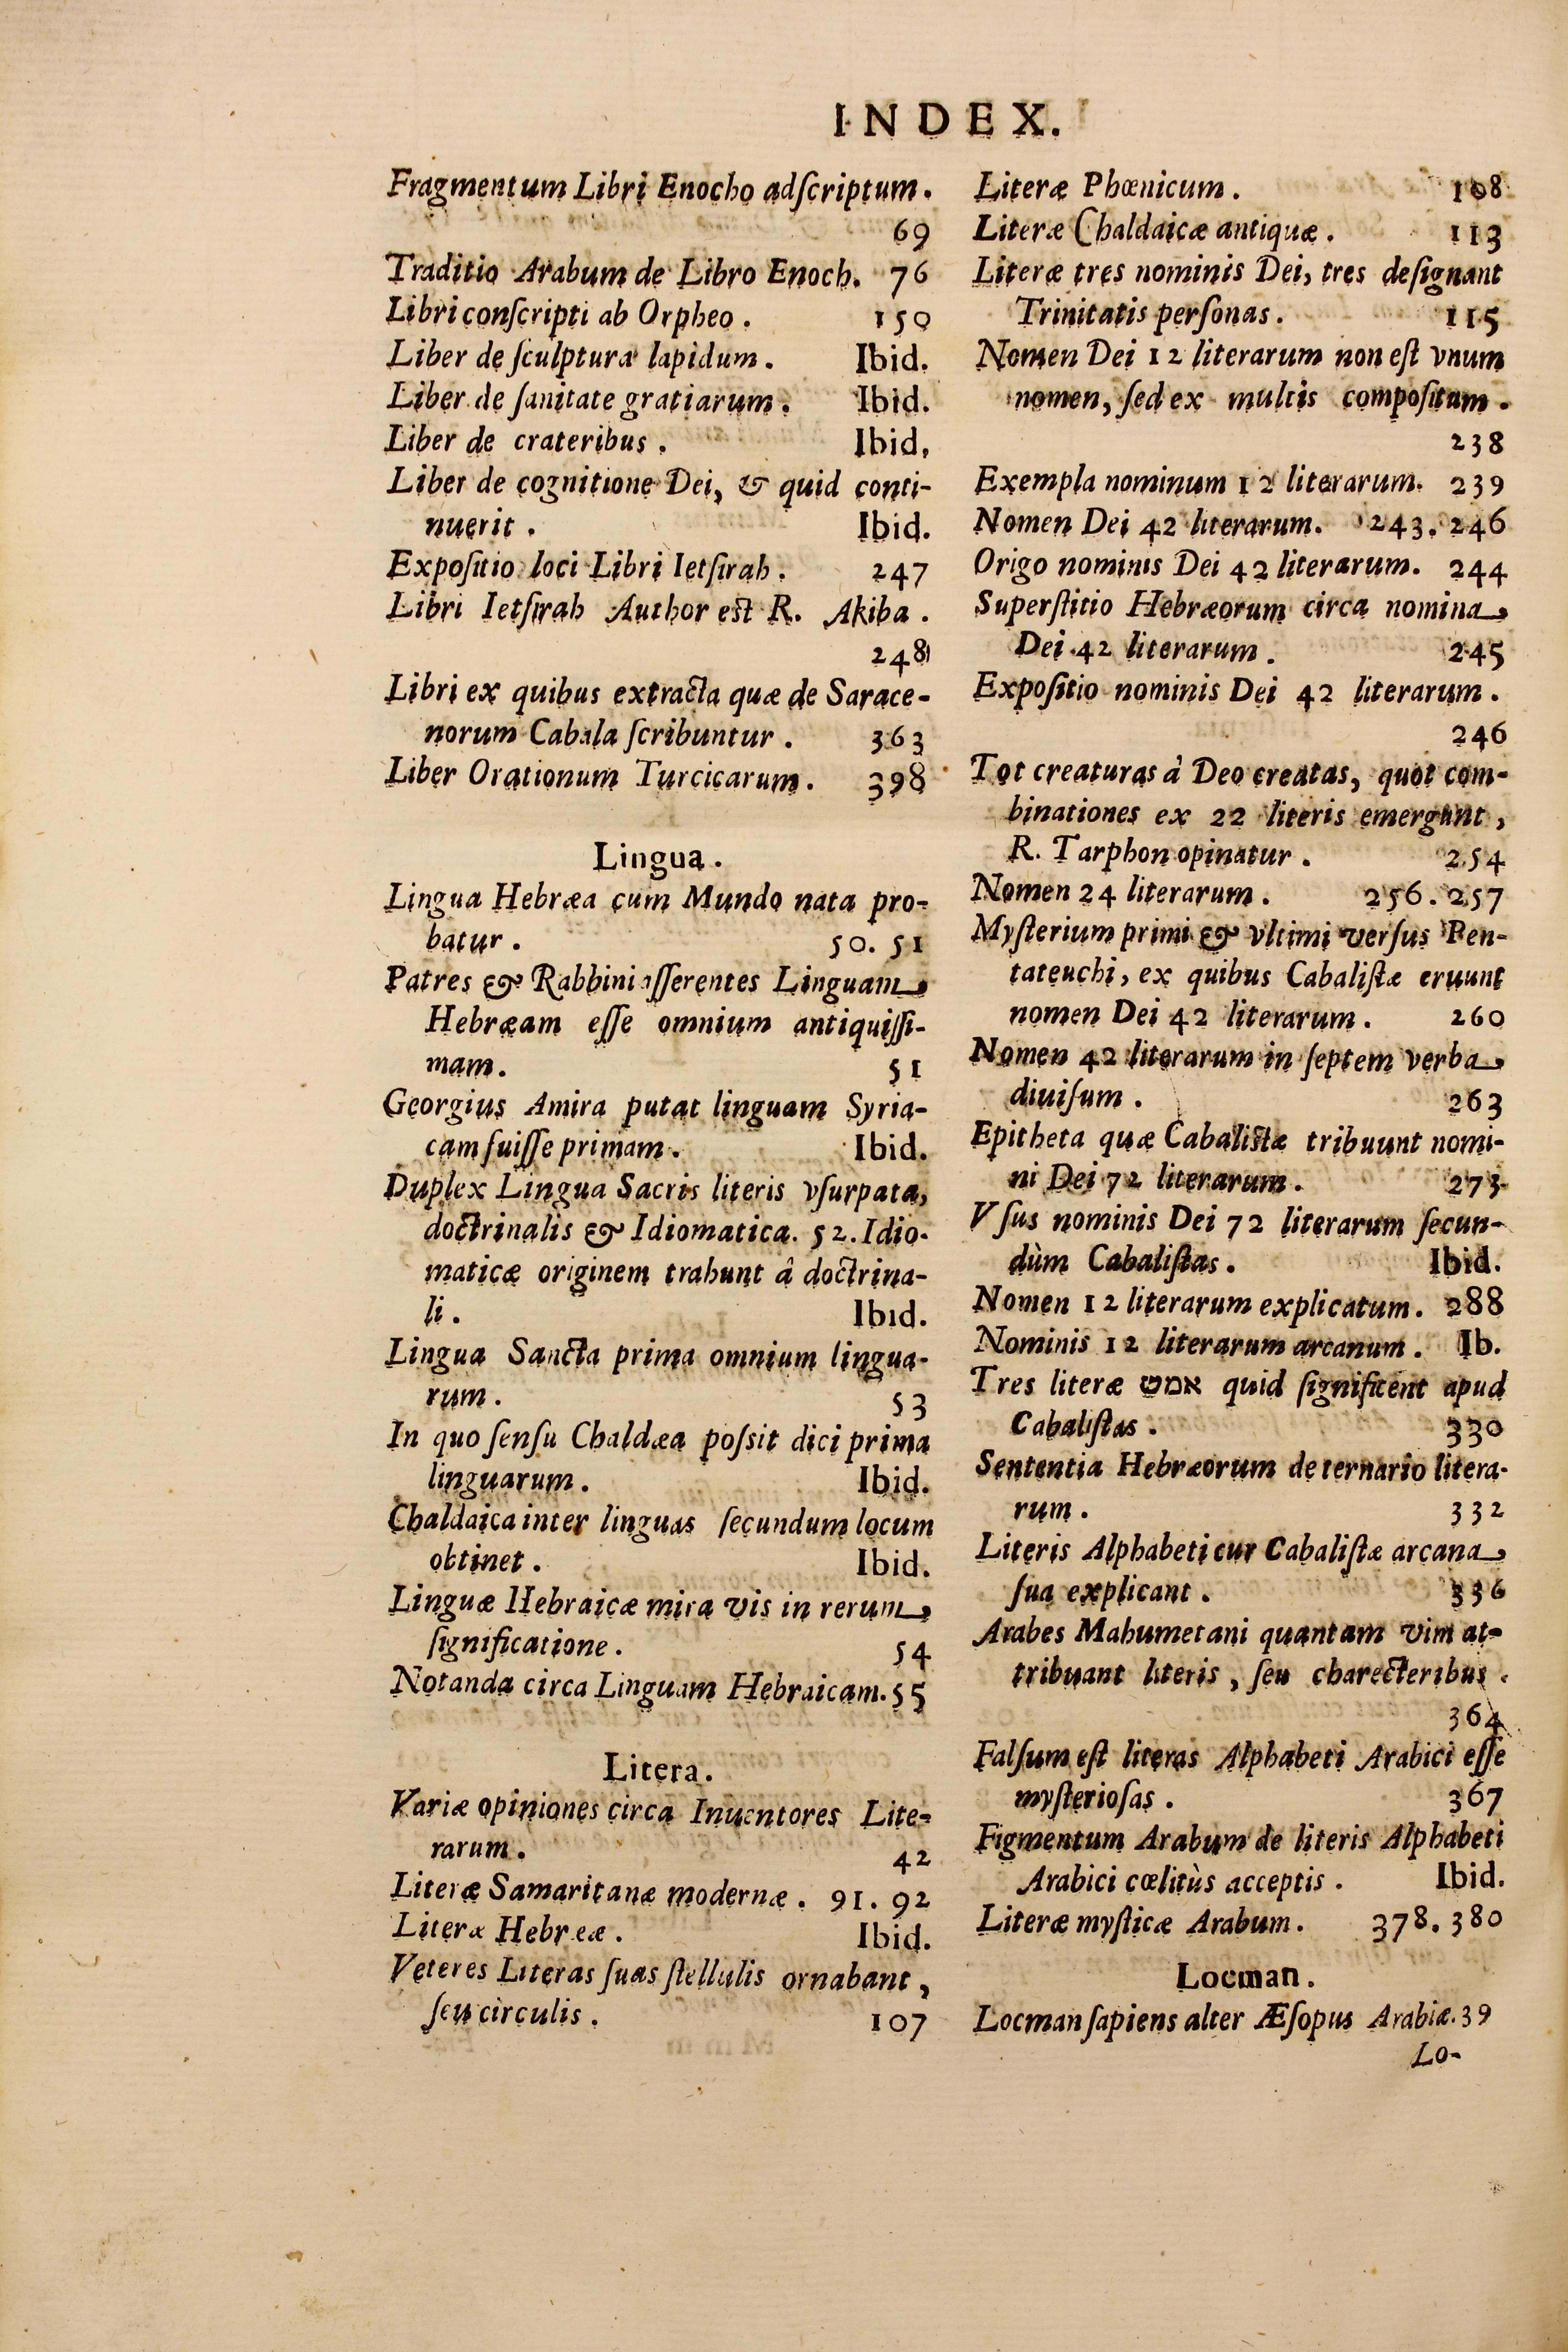 INDEX.
Fragmentum Libri Enocho adſcriptum.
69
Traditio Arabum de Libro Enoch. 76
Libri conſcripti ab Orpheo. 150
Liber de ſculptura lapidum. Ibid.
Liber de ſanitate gratiarum. Ibid.
Liber de crateribus. Ibid.
Liber de cognitione Dei, & quid conti-
nuerit. Ibid.
Expoſitio loci Libri Ietſirah. 247
Libri Ietſirah Author est R. Akiba.
248
Libri ex quibus extracta quæ de Sarace-
norum Cabala ſcribuntur. 363
Liber Orationum Turcicarum. 398
Lingua.
Lingua Hebræa cum Mundo nata pro-
batur. 50. 51
Patres & Rabbini aſſerentes Linguam
Hebræam eſſe omnium antiquiſſi-
mam. 51
Georgius Amira putat linguam Syria-
cam fuiſſe primam. Ibid.
Duplex Lingua Sacris literis vſurpata,
doctrinalis & Idiomatica. 52. Idio-
maticæ originem trahunt â doctrina-
li. Ibid.
Lingua Sancta prima omnium lingua-
rum. 53
In quo ſenſu Chaldæa poſsit dici prima
linguarum. Ibid.
Chaldaica inter linguas ſecundum locum
obtinet. Ibid.
Linguæ Hebraicæ mira vis in rerum
ſignificatione. 54
Notanda circa Linguam Hebraicam. 55
Litera.
Variæ opiniones circa Inuentores Lite-
rarum. 42
Literæ Samaritanæ modernæ. 91. 92
Literæ Hebreæ. Ibid.
Veteres Literas ſuas ſtellulis ornabant,
ſeu circulis. 107
Literæ Phœnicum. 108
Literæ Chaldaicæ antiquæ. 113
Literæ tres nominis Dei, tres deſignant
Trinitatis perſonas. 115
Nomen Dei 12 literarum non eſt vnum
nomen, ſed ex multis compoſitum.
238
Exempla nominum 12 literarum. 239
Nomen Dei 42 literarum. 243. 246
Origo nominis Dei 42 literarum. 244
Superſtitio Hebræorum circa nomina
Dei 42 literarum. 245
Expoſitio nominis Dei 42 literarum.
246
Tot creaturas à Deo creatas, quot com-
binationes ex 22 literis emergunt,
R. Tarphon opinatur. 254
Nomen 24 literarum. 256. 257
Myſterium primi & vltimi verſus Pen-
tateuchi, ex quibus Cabaliſtæ eruunt
nomen Dei 42 literarum. 260
Nomen 42 literarum in ſeptem verba
diuiſum. 263
Epitheta quæ Cabalistæ tribuunt nomi-
ni Dei 72 literarum. 273
Vſus nominis Dei 72 literarum ſecun-
dùm Cabaliſtas. Ibid.
Nomen 12 literarum explicatum. 288
Nominis 12 literarum arcanum. Ib.
Tres literæ אמש quid ſignificent apud
Cabaliſtas. 330
Sententia Hebræorum de ternario litera-
rum. 332
Literis Alphabeti cur Cabaliſtæ arcana
ſua explicant. 336
Arabes Mahumetani quantam vim at-
tribuant literis, ſeu charecteribus.
364
Falſum eſt literas Alphabeti Arabici eſſe
myſterioſas. 367
Figmentum Arabum de literis Alphabeti
Arabici cœlitùs acceptis. Ibid.
Literæ myſticæ Arabum. 378. 380
Locman.
Locman ſapiens alter Æſopus Arabiæ. 39
Lo-